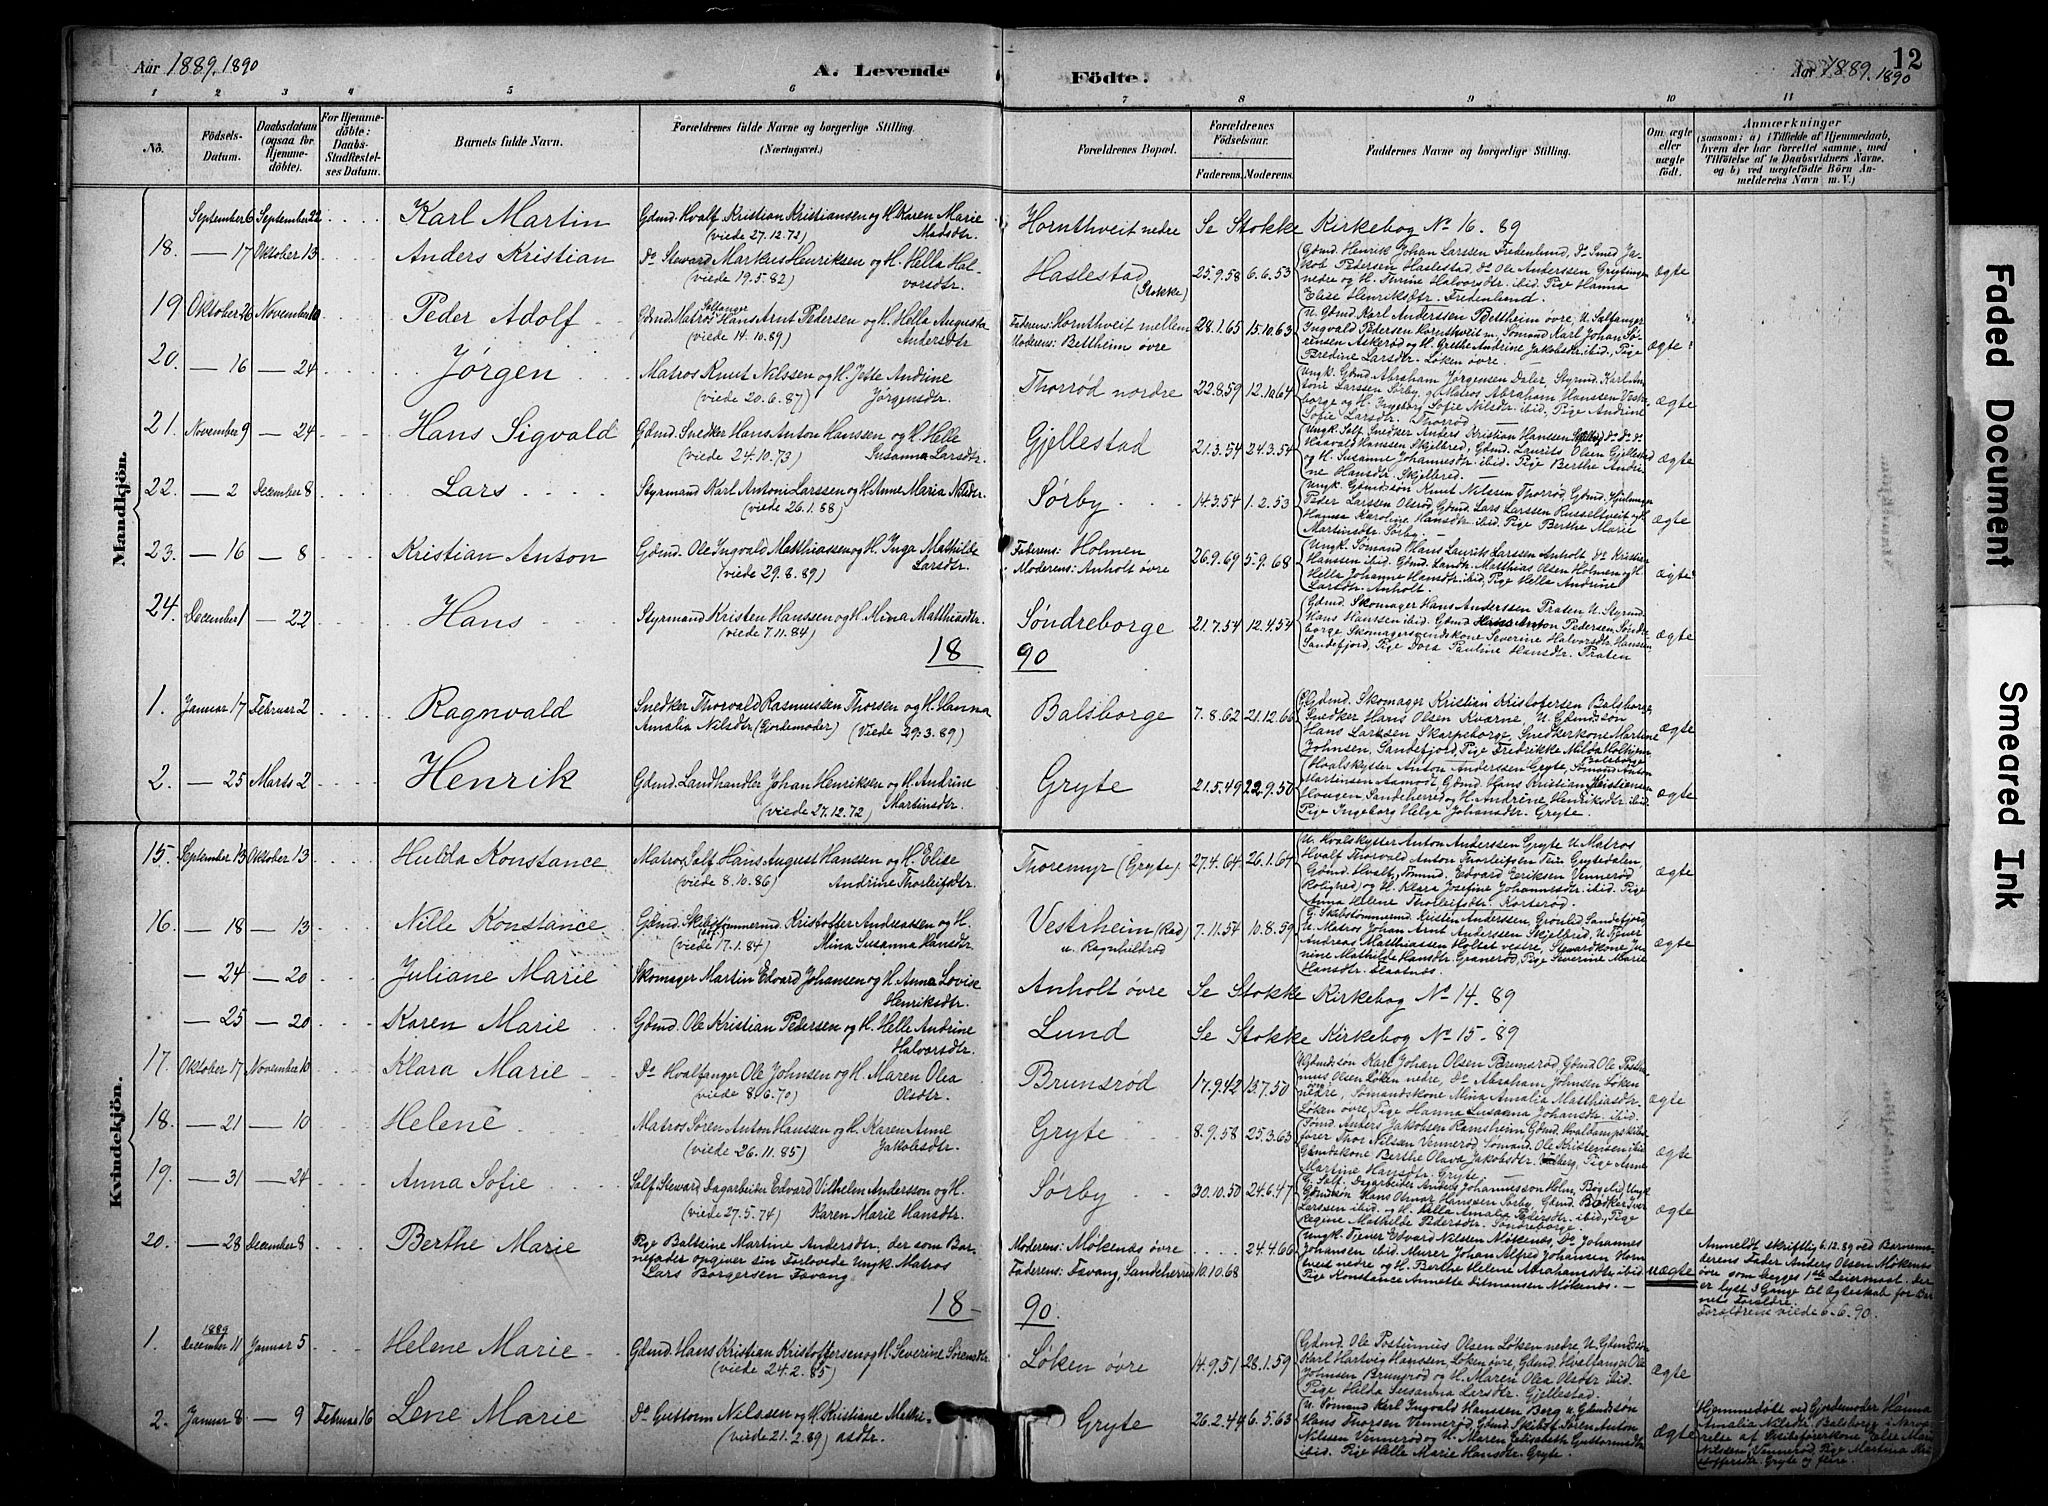 Aar 1889. 1890
A. Levende Födte.
Aar 1889. 1890
12
1 2 3 4 5 6 7 8 9 10 11
No.
Födsels-Datum.
Daabsdatum (ogsaa for Hjemmedöbte).
For Hjemmedöbte: Daabs-Stadfæstelses Datum.
Barnets fulde Navn.
Forældrenes fulde Navne og borgerlige Stilling.
(Næringsvei.)
Forældrenes Bopæl.
Forældrenes Födselsaar.
Faderens. Moderens.
Faddernes Navne og borgerlige Stilling.
Om ægte eller uægte födt.
Anmærkninger
(saasom: a) i Tilfælde af Hjemmedaab, hvem der har forrettet samme, med Tilföielse af to Daabsvidners Navne, og b) ved uægtefödte Börn Anmelderens Navn m. V.)
Mandkjön.
September 6 September 22 Karl Martin Gdmd. Hvalf. Kristian Kristiansen og H. Karen Marie Madsdtr. (viede 27.12.72) Hornthveit nedre Se Stokke Kirkebog No 16. 89
18. — 17 Oktober 13 Anders Kristian Do Steward Markus Henriksen og H. Hella Halvorsdtr. (viede 19.5.82) Haslestad (Stokke) 25.9.58 6.6.53 Gdmd. Henrik Johan Larssen Fredenlund, Do Smed Jakob Pedersen Haslestad, Do Ole Anderssen Grytingen nedre og H. Thrine Halvorsdtr. ibid. Pige Hanna Elise Henriksdtr. Fredenlund. ægte
19 Oktober 26 November 10 Peder Adolf Gdmd. Matros Hans Arnt Pedersen og H. Hella Augusta Andersdtr. (viede 14.10.89) Faderens: Hornthveit mellem Moderens: Bettheim øvre 28.1.65 15.10.63 U. Gdmd. Karl Anderssen Bettheim øvre, U. Salfanger Ingvald Pedersen Hornthveit m, Sømand Karl Johan Sørensen Askerød og H. Grethe Andrine Jakobsdtr. ibid, Pige Bredine Larsdtr. Løken øvre — ægte
20. — 16 — 24 Jørgen Matros Knut Nilssen og H. Jette Andrine Jørgensdtr. (viede 20.6.87) Thorrød nordre 22.8.59 12.10.64 Ungk. Gdmd. Abraham Jørgensen Daler, Styrmd. Karl Antoni Larssen Sørby, Matros Abraham Hanssen Vestborge og H. Ingeborg Sofie Nilsdtr. ibid, Pige Andrine Sofie Larsdtr. Thorrød — ægte
21. November 9 — 24 Hans Sigvald Gdmd. Snedker Hans Anton Hanssen og H. Helle Susanna Larsdtr. (viede 24.10.73) Gjellestad 21.3.54 24.3.54 Ungk. Salf. Snedker Anders Kristian Hanssen Do Do Haavald Hanssen Skjelbred, Gdmd. Laurits Olsen Gjellestad og H. Susanne Johannesdtr. ibid. Pige Berthe Andrine Hansdtr. Skjelbred. ægte
22. — 2 December 8 Lars Styrmand Karl Antoni Larssen og H. Anne Maria Nilsdtr. (viede 26.1.88) Sørby 14.3.54 1.2.53 Ungk. Gdmdssøn Knut Nilssen Thorrød, Gdmd. Peder Larssen Olsrød, Gdmd. Lars Larssen Russeltveit og H. Hanna Karoline Hansdtr. ibid. Pige Berthe Marie Martinsdtr. Sørby — ægte
23. — 16 — 8 Kristian Anton Gdmd. Ole Ingvald Matthiassen og H. Inga Mathilde Larsdtr. (viede 29.8.89) Faderens: Holmen Moderens: Anholt øvre 26.9.69 5.9.68 Ungk. Sømand Hans Laurits Larssen Anholt, Do Kristian Hanssen ibid. Gdmd. Landh. Matthias Olsen Holmen og H. Helle Johanne Hansdtr. ibid, Pige Helle Andrine Larsdtr. Anholt. ægte
24. December 1 — 22 Hans Styrmand Kristen Hanssen og H. Mina Matthiasdtr. (viede 7.11.84) Søndreborge 21.7.54 12.4.54 Gdmd. Skomager Hans Anderssen Praten U. Styrmd. Hans Hanssen ibid. Gdmd. Anton Pedersen Søndreborge Skomagersvendskone Severine Halvorsdtr. Hanssen Sandefjord, Pige Dora Pauline Hansdtr. Praten ægte
18 90
1. Januar 17 Februar 2 Ragnvald Snedker Thorvald Rasmussen Thorsen og H. Hanna Amalia Nilsdtr. (Gjordemoder) (viede 29.3.89) Balsborge 7.8.62 21.12.66 Gdmd. Skomager Kristian Kristofersen Balsborge, Snedker Hans Olsen Kværne, U. Gdmdssøn Hans Larssen Skarpsborge, Snedkerkone Martine Johnsen, Sandefjord, Pige Fredrikke Milda Balsborge ægte
2. — 25 Marts 2 Henrik Gdmd. Landhandler Johan Henriksen og H. Andrine Martinsdtr. (viede 27.12.72) Gryte 21.5.49 22.9.50 Hvalskytter Anton Anderssen Gryte, Sømand Anton Martinsen Aamodt, Gdmd. Hans Kristian Kristiansen Hougen Sandeherred og H. Andrine Henriksdtr. ibid. Pige Ingeborg Helga Johansdtr. Gryte. ægte
Kvindekjön.
15. September 13 Oktober 13 Hulda Konstance Matros Salf. Hans August Hanssen og H. Elise Andrine Thorleifsdtr. (viede 8.10.86) Thoremyr (Gryte). 27.4.64 26.1.64 U. Hvalskytter Anton Anderssen Gryte U. Matros Hvalf. Thorvald Anton Thorleifsen Grytedalen, Gdmd. Hvalf. Sømmd. Edvard Eriksen Vennerød Rolighed) og H. Klara Josefine Johannesdtr. ibid. Pige Anna Helene Thorleifsdtr. Korterød. ægte
16. — 18 — 13 Nille Konstance Gdmd. Skibstømmermd. Kristoffer Andreassen og H. Mina Susanna Hansdtr. (viede 17.1.84) Vestrheim (Rød) u. Ragnhildrød 7.11.54 10.8.59 G. Skibstømmermd. Kristen Anderssen, Grønlid Sandefjord U. Matros Johan Arnt Anderssen Skjelbred, U. Tjener Andreas Matthiassen Holtet vestre, Stewardkone Junine Mathilde Hansdtr. Granerød, Pige Severine Marie Hansdtr. Slaatnes. ægte
— 24 — 20 Juliane Marie Skomager Martin Edvard Johansen og H. Anna Lovise Henriksdtr. Anholt øvre Se Stokke Kirkebog No 14. 89
— 25 — 20 Karen Marie Gdmd. Ole Kristian Pedersen og H. Helle Andrine Halvorsdtr. Lund Se Stokke Kirkebog No 15. 89
17. Oktober 17 November 10 Klara Marie Do Hvalfanger Ole Johnsen og H. Maren Olea Olsdtr. (viede 8.6.70) Brunsrød 17.9.42 13.7.50 Gdmdssøn Karl Johan Olsen Brunsrød, Gdmd. Ole Postumus Olsen Løken nedre, Do Abraham Johnsen Løken nedre, Sømandskone Mina Amalia Matthiasdtr. Løken øvre, Pige Hanna Susanna Johansdtr. ibid. ægte
18. — 21 — 10 Helene Matros Søren Anton Hanssen og H. Karen Anne Jakobsdtr. (viede 26.11.85) Gryte 8.9.58 25.3.63 Sømd. Anders Jakobsen Ramsheim Gdmd. Hvaldampskibsfører Thor Nilsen Vennerød, Sømand Ole Kristensen ibid. Gdmdskone Berthe Olava Jakobsdtr. Pige Anne Martine Hansdtr. Gryte ægte
19. — 31 — 24 Anna Sofie Salf. Steward, Dagarbeider Edvard Vilhelm Andersson og H. Karen Marie Hansdtr. (viede 27.5.74) Sørby 30.10.50 24.6.47 G. Salf. Dagarbeider Anders Johannesson Holm, Bøgelid, Ungk. Gdmdssøn Hans Otmar Hanssen Sørby, Gdmd. Bødker Iver Larssen ibid. og H. Hella Amalia Pedersdtr. ibid, Pige Regine Mathilde Pedersdtr. Søndreborge. ægte
20. — 28 December 8 Berthe Marie Pige Baltsine Martine Andersdtr. der som Barnefader opgiver sin Forlovede Ungk. Matros Lars Borgersen Fævang Moderens: Møkenæs øvre Faderens: Fævang, Sandeherred 24.4.66 10.10.68 Ungk. Tjener Edvard Nilssen Møkenæs, Do Johannes Johansen ibid. Murer Johan Alfred Johansen Hornthveit nedre og H. Berthe Helene Abrahamsdtr. ibid. Pige Konstance Annette Ditmansen Møkenæs. — uægte Anmeldt skriftlig 6.12.89 ved Barnemoderens Fader Anders Olsen Møkenæs øvre som begges 1ste Leiermaal. Der er lyst 3 Gange til Ægteskab for Barnets Forældre. Forældrene viede 6.6.90.
18 — 90.
1. 1889 December 11 Januar 5 Helene Marie Gdmd. Hans Kristian Kristoffersen og H. Severine Sørensdtr. (viede 24.2.85) Løken øvre 14.9.51 28.1.59 Gdmd. Ole Postumus Olsen Løken nedre, U. Gdmdssøn Karl Hartvig Hanssen, Løken øvre, Gdmd. Hvalfanger Ole Johnsen Brunsrød og H. Maren Olea Olsdtr. ibid. Pige Hilda Susanna Larsdtr. Gjellestad. ægte
2. Januar 8 — 9 Februar 16 Lene Marie Do Guttorm Nilssen og H. Kristiane Mathiasdtr. (viede 21.2.89) Gryte 26.2.44 6.5.63 U. Sømand Karl Ingvald Hanssen Berg u. Gdmdssøn Hans Thorsen Vennerød, Gdmd. Skibsf. Søren Anton Nilssen Vennerød og H. Maren Elisabeth Guttormsdtr. ibid. Pige Helle Marie Hansdtr. Gryte. ægte Hjemmedøbt ved Gjordemoder Hanna Amalia Nilsdtr. Balsborge i Nærværelse af Skibsførerkone Else Mar. Nilssen, Vennerød, Pige Martina Kristoffersdtr. Gryte og flere.
Faded Document
Smeared Ink